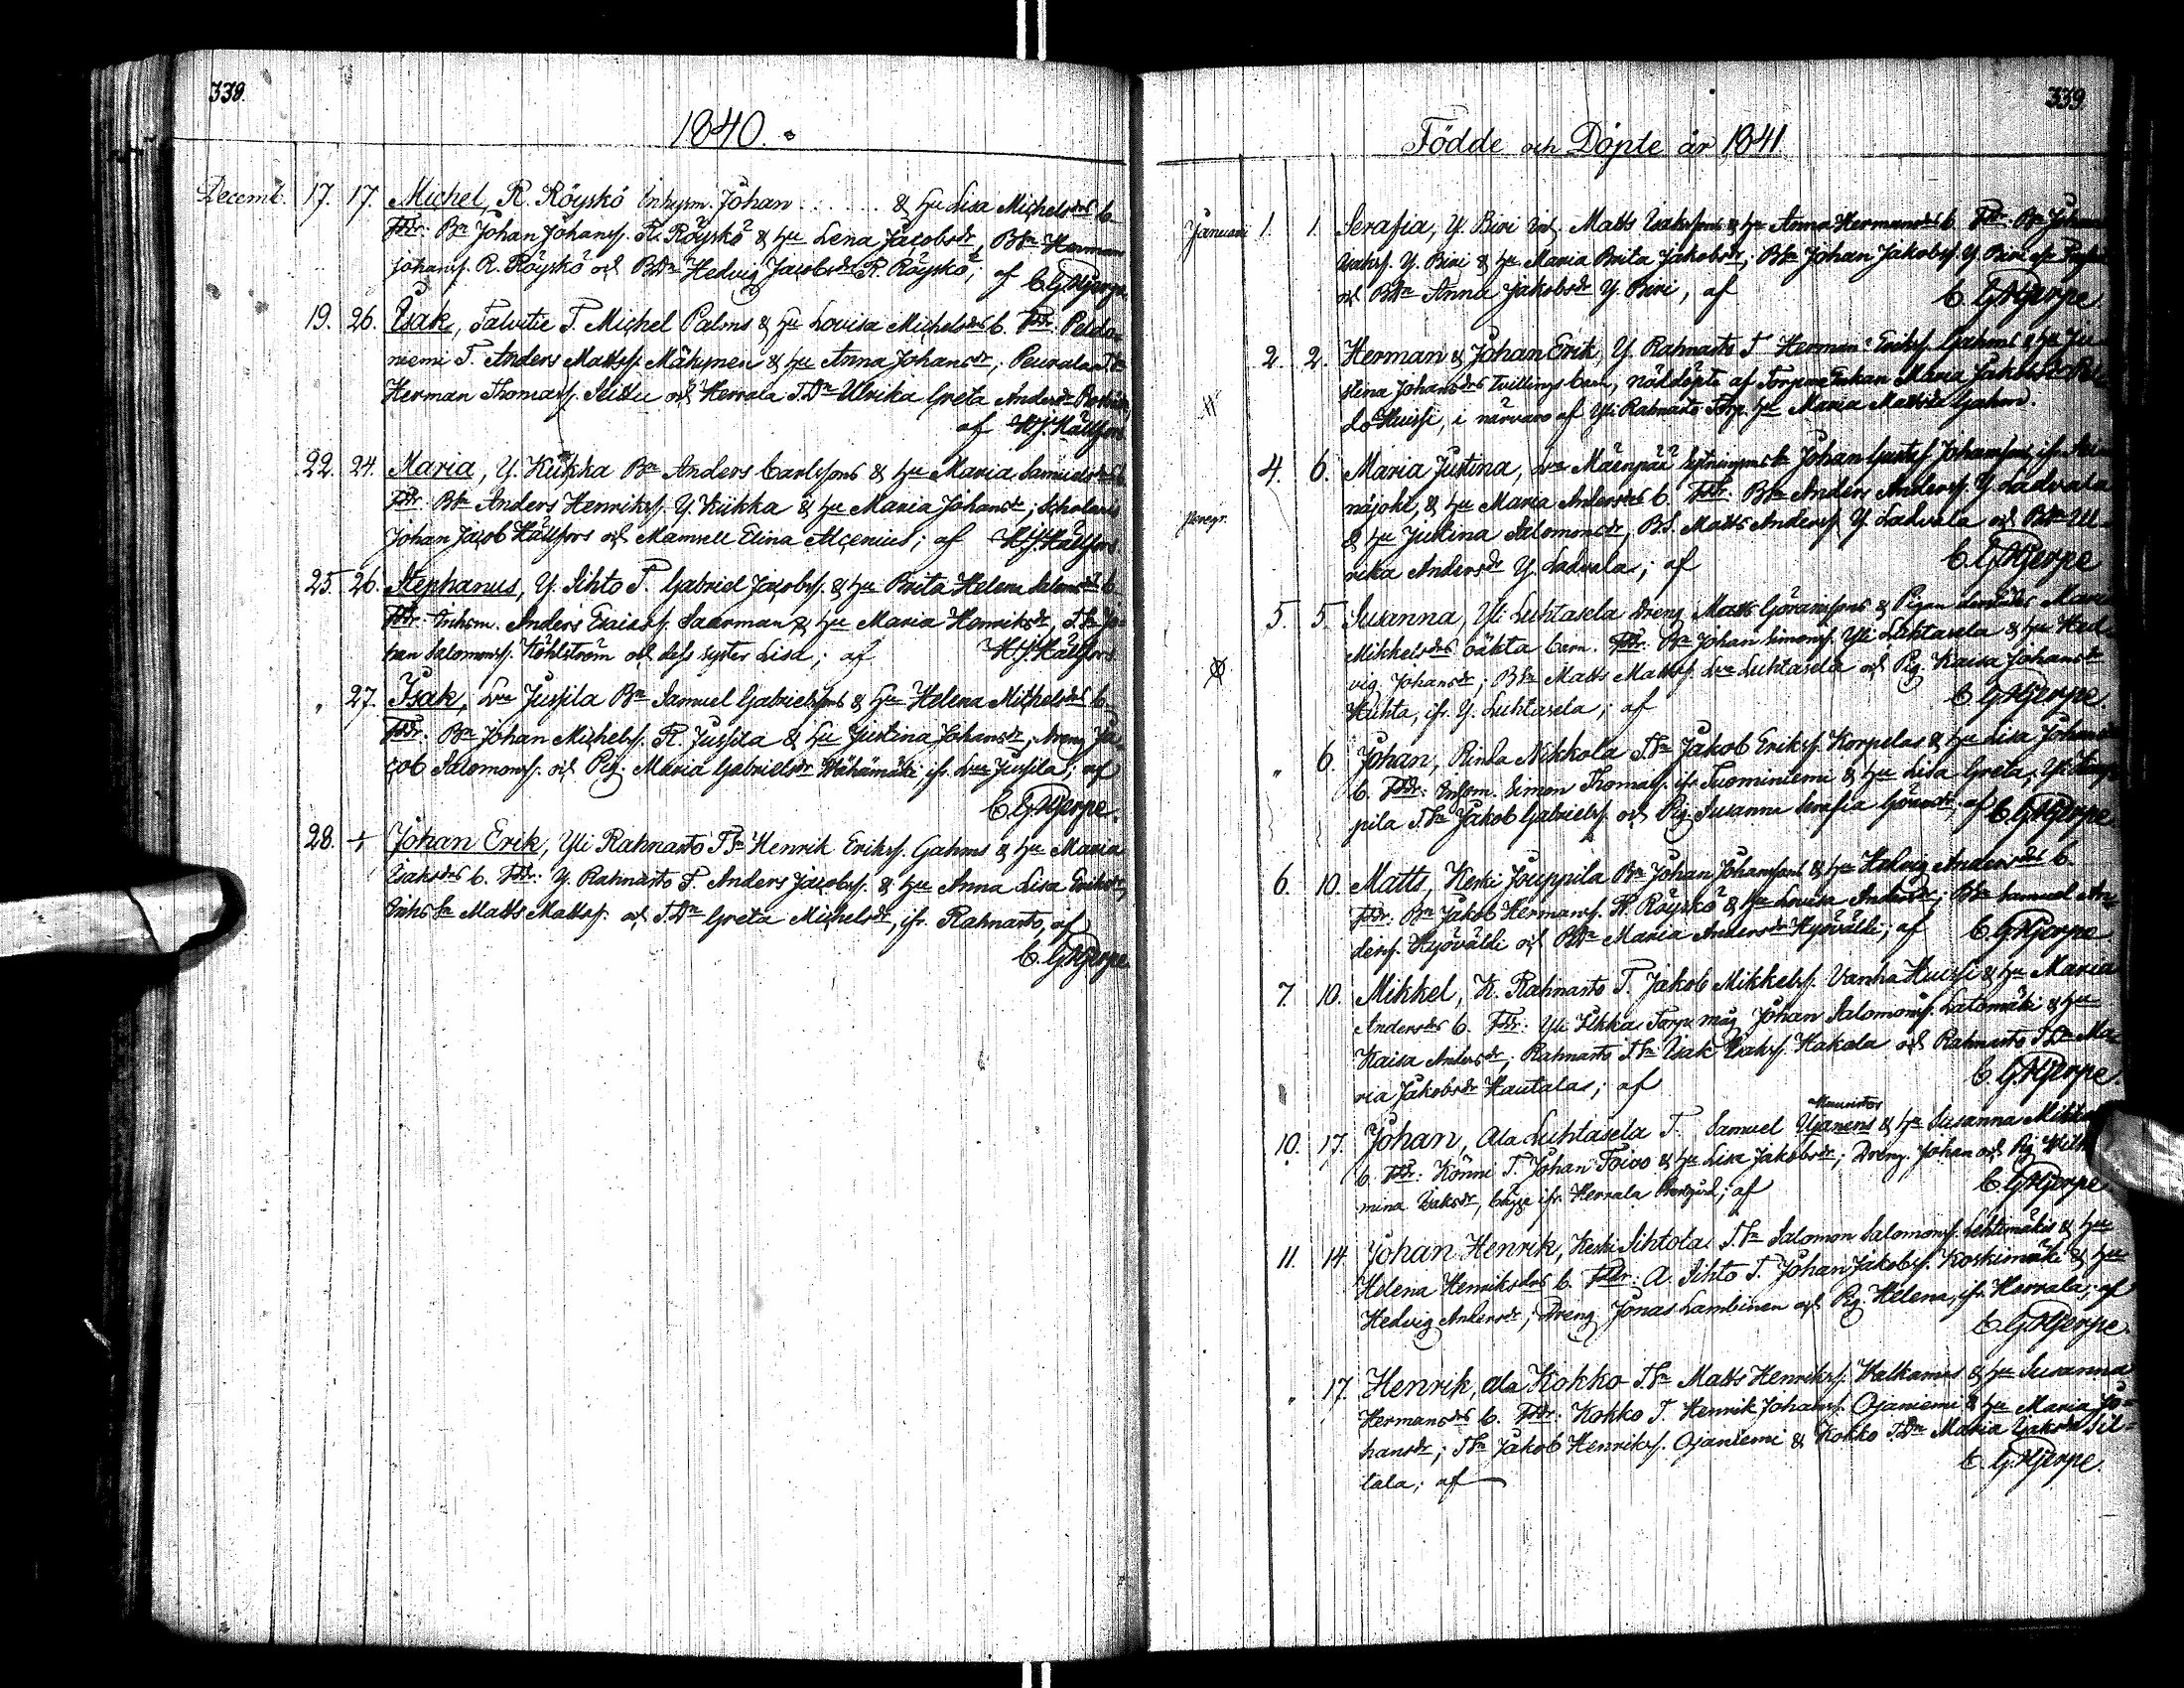 338.
1840.
Decemb. 17. 17. Michel, R. Röyskö Inhysm. Johan . . . . . . & Hu Lisa Michelsdrs b.
Fddr: Bn Johan Johanss. R. Röyskö & Hu Lena Jacobsdr, BSn Herman
Johanss. R. Röyskö och BDn Hedvig Jacobsdr R. Röyskö; af C. G. Hjerpe
19. 26. Isak, Talvitie T. Michel Palms & Hu Lovisa Michelsdrs b. Fddr: Peldo-
niemi T. Anders Mattss. Mähynen & Hu Anna Johansdr, Peurala
Herman Thomass. och Herrala T.Dr Ulrika Greta Andersdr
af H. J. Hällfors
22. 24. Maria, Y. Kiikka Bn Anders Carlssons & Hu Maria Samuelsdrs b.
Fddr: BSn Anders Henrikss. Y. Kiikka & Hu Maria Johansdr; Scholaris
Johan Jacob Hällfors och Mamsell Elina Alcenius; af H. J. Hällfors
25. 26. Stephanus, Y. Sihto T. Gabriel Jacobss. & Hu Brita Helena Salomsdrs b.
Fddr: Inhsm. Anders Esaiass. Saarman & Hu Maria Henriksdr, T.Sn Jo-
han Salomonss. Köhlström och dess syster Lisa; af H. J. Hällfors
" 27. Isak, Lra Jussila Bn Samuel Gabrielssons & Hu Helena Michelsdrs b.
Fddr: Bn Johan Michelss. R. Jussila & Hu Justina Johansdr, dreng Ja-
cob Salomonss. och Pig. Maria Gabrielsdr Wähämäki ifr. Lra Jussila; af
C. G. Hjerpe.
28. + Johan Erik, Yli Rahnasto TSn Henrik Erikss. Gahms & Hu Maria
Isaksdrs b. Fddr: Y. Rahnasto T. Anders Jacobss. & Hu Anna Lisa Eriksdr,
Inhs Sn Matts Mattss. och T.Dr Greta Michelsdr, ifr. Rahnasto, af
C. G. Hjerpe
339.
Födde och Döpte år 1841
Januari 1. 1. Serafia, Y. Biri Matts Isakssons & Hu Anna Hermansdrs b. Fddr: Bn Johan
Isakss. Y. Biri & Hu Maria Brita Jakobsdr; BSn Johan Jakobss. Y. Biri
och BDn Anna Jakobsdr Y. Biri, af C. G. Hjerpe
2. 2. Herman & Johan Erik, Y. Rahnasto T. Herman Erikss. Gahms & Hu Ju-
stina Johansdrs tvillings barn, nöddöpte af Torpare Enkan Maria Jakobsdr
Huissi, i närvaro af Yli Rahnasto Torp. Hu Maria Mattsdr Gahm.
4. 6. Maria Justina, Lra Mäenpää Johan Gustaf Johanssons ifr.
näjoki, & Hu Maria Andersdrs b. Fddr: BSn Anders Anderss. Y. Ladvala
peregr. & Hu Justina Salomonsdr, BS. Matts Anderss. Y. Ladvala och BDn Ul-
rika Andersdr Y. Ladvala; af C. G. Hjerpe
5. 5. Susanna, Yli Luhtasela dreng Matts Göranssons & Pigan Maria
Mikkelsdrs oäkta barn. Fddr: Bn Johan Simonss. Yli Luhtasela & Hu Hed-
vig Johansdr; BSn Matts Mattss. Lra Luhtasela och Pig. Kaisa Johansdr
Huhta, ifr. Y. Luhtasela; af C. G. Hjerpe.
" 6. Johan, Rinta Nikkola T.Sn Jakob Erikss. Korpelas & Hu Lisa Johansdrs
b. Fddr: Inhsm. Simon Thomass. ifr. Tuominiemi & Hu Lisa Greta, Yli
pila T.Sn Jakob Gabrielss. och Pig. Susanna Serafia Göransdr, af C. G. Hjerpe.
6. 10. Matts, Keski Jouppila Bn Johan Johanssons & Hu Hedvig Andersdrs b.
Fddr: Bn Jakob Hermanss. R. Röyskö & Hu Lovisa Andersdr; BSn Samuel An-
derss. Hyövälti och BDn Maria Andersdr Hyövälti; af C. G. Hjerpe
7. 10. Mikkel, K. Rahnasto T. Jakob Mikkelss. Vanha Huissi & Hu Maria
Andersdrs b. Fddr: Yli Ilkka Torp. måg Johan Salomonss. Latomäki & Hu
Kaisa Andersdr, Rahnasto T.Sn Isak Isakss. Hakala och Rahnasto T.Dr Ma-
ria Jakobsdr Hautalas; af C. G. Hjerpe.
10. 17. Johan, Ala Luhtasela T. Samuel Ujanens & Hu Susanna
b. Fddr: Könni T. Johan Toivo & Hu Lisa Jakobsdr; Dreng. Johan och Pig. Wilhel-
mina Isaksdr, bägge ifr. Herrala; af C. G. Hjerpe.
11. 14. Johan Henrik, Keski Sihtola T.Sn Salomon Salomonss. Lehtimäkis & Hu
Helena Henriksdrs b. Fddr: A. Sihto T. Johan Jakobss. Koskimäki & Hu
Hedvig Andersdr; Dreng Jonas Lambinen och Pig. Helena, ifr. Herrala; af
C. G. Hjerpe.
" 17. Henrik, Ala Kokko T.Sn Matts Henrikss. Walkamas & Hu Susanna
Hermansdrs b. Fddr: Kokko T. Henrik Johanss. Ojaniemi & Hu Maria Jo-
hansdr; T.Sn Jakob Henrikss. Ojaniemi & Kokko T.Dr Maria Isaksdr Sil-
tala; af C. G. Hjerpe.